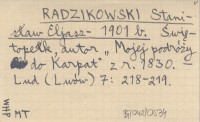 RADZIKOWSKI Stani-
sław Eljasz- 1901 b. Świę-
topełk, autor „Mojej podróży
do Karpat" z r. 1830.
Lud (Lwów) 7: 218-219.
WHP
MT